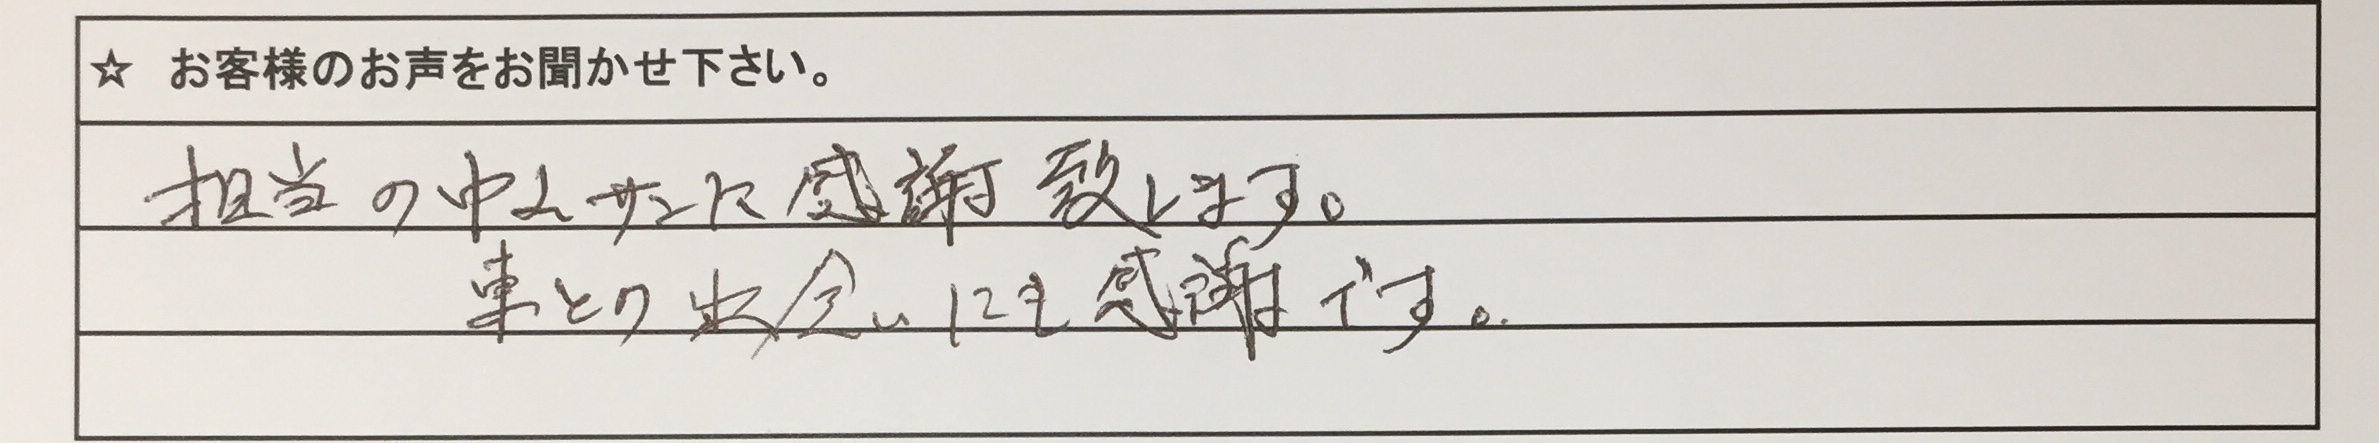 ☆ お客様のお声をお聞かせ下さい。
担当の中山サンに感謝致します。
車との出会いにも感謝です。